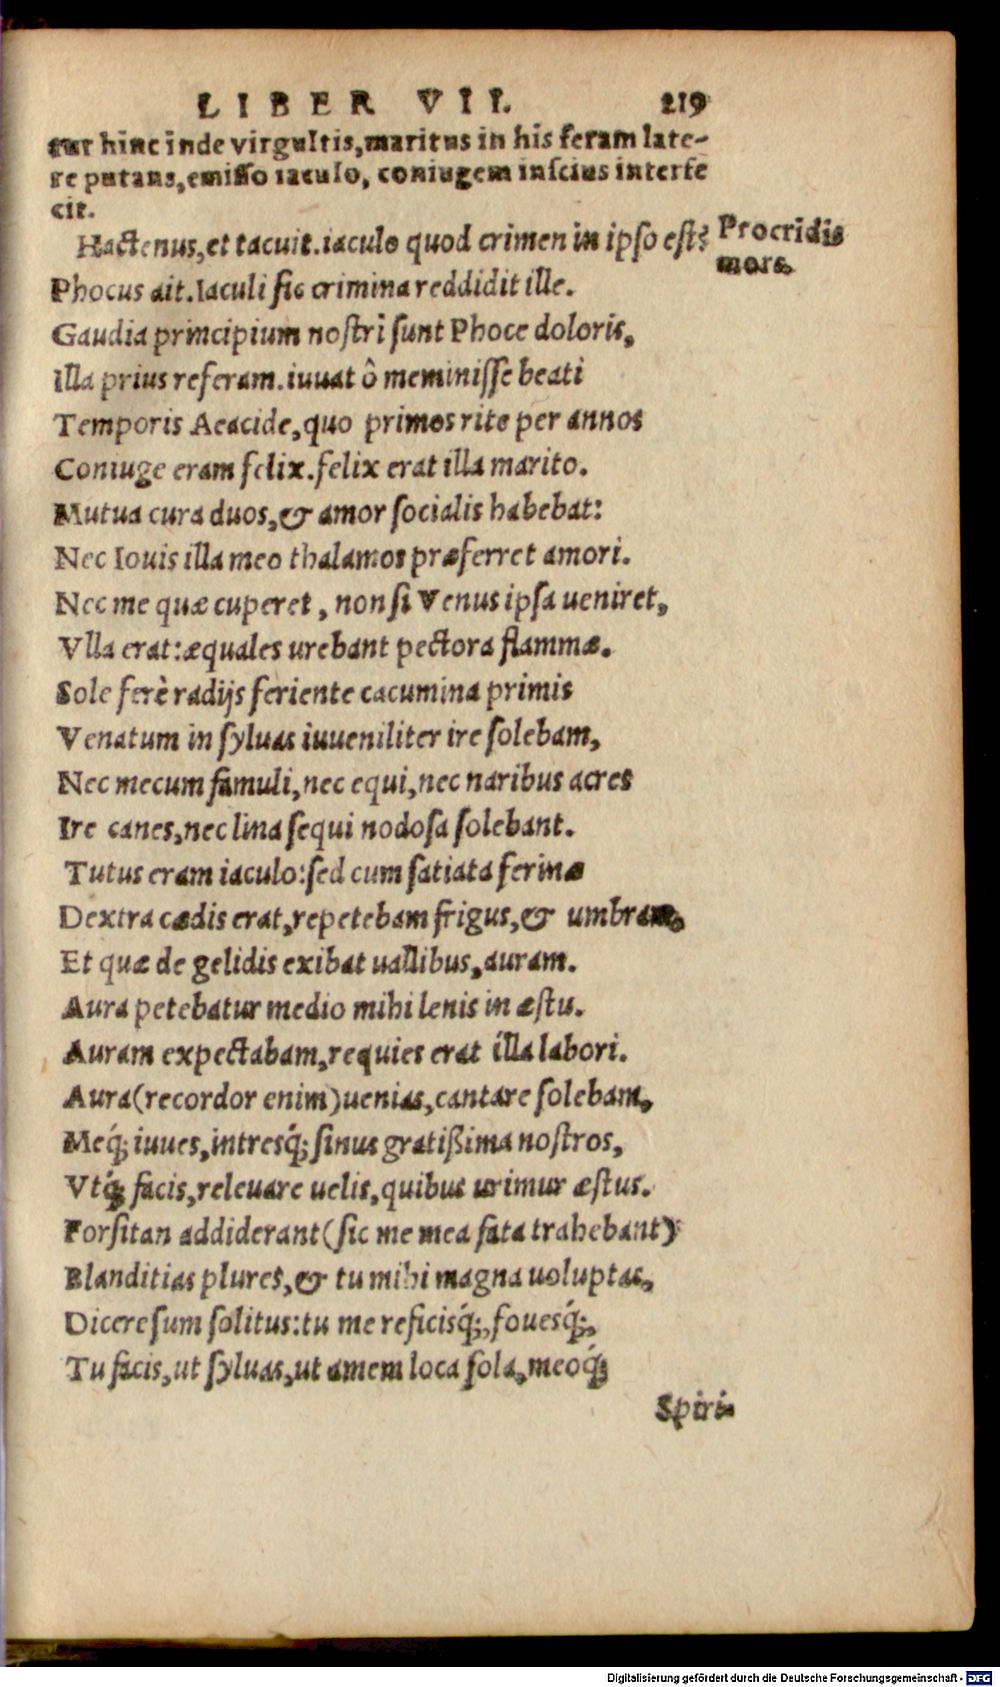 LIBER VII. 219
tur hinc inde virgultis, maritus in his feram late-
re putans, emisso iaculo, coniugem inscius interfe
cit.
Hactenus, et tacuit. iaculo quod crimen in ipso est?
Procridis
mors.
Phocus ait. Iaculi sic crimina reddidit ille.
Gaudia principium nostri sunt Phoce doloris,
Illa prius referam. iuuat ô meminisse beati
Temporis Aeacide, quo primos rite per annos
Coniuge eram felix. felix erat illa marito.
Mutua cura duos, & amor socialis habebat:
Nec Iouis illa meo thalamos præferret amori.
Nec me quæ cuperet, non si Venus ipsa ueniret,
Vlla erat: æquales urebant pectora flammæ.
Sole ferè radijs feriente cacumina primis
Venatum in syluas iuueniliter ire solebam,
Nec mecum famuli, nec equi, nec naribus acres
Ire canes, nec lina sequi nodosa solebant.
Tutus eram iaculo: sed cum satiata ferinæ
Dextra cædis erat, repetebam frigus, & umbram,
Et quæ de gelidis exibat uallibus, auram.
Aura petebatur medio mihi lenis in æstu.
Auram expectabam, requies erat illa labori.
Aura (recordor enim) uenias, cantare solebam,
Meq́; iuues, intresq́; sinus gratißima nostros,
Vtq́; facis, releuare uelis, quibus urimur æstus.
Forsitan addiderant (sic me mea fata trahebant)
Blanditias plures, & tu mihi magna uoluptas,
Dicere sum solitus: tu me reficisq́;, fouesq́;,
Tu facis, ut syluas, ut amem loca sola, meoq́;
Spiri-
Digitalisierung gefördert durch die Deutsche Forschungsgemeinschaft - DFG